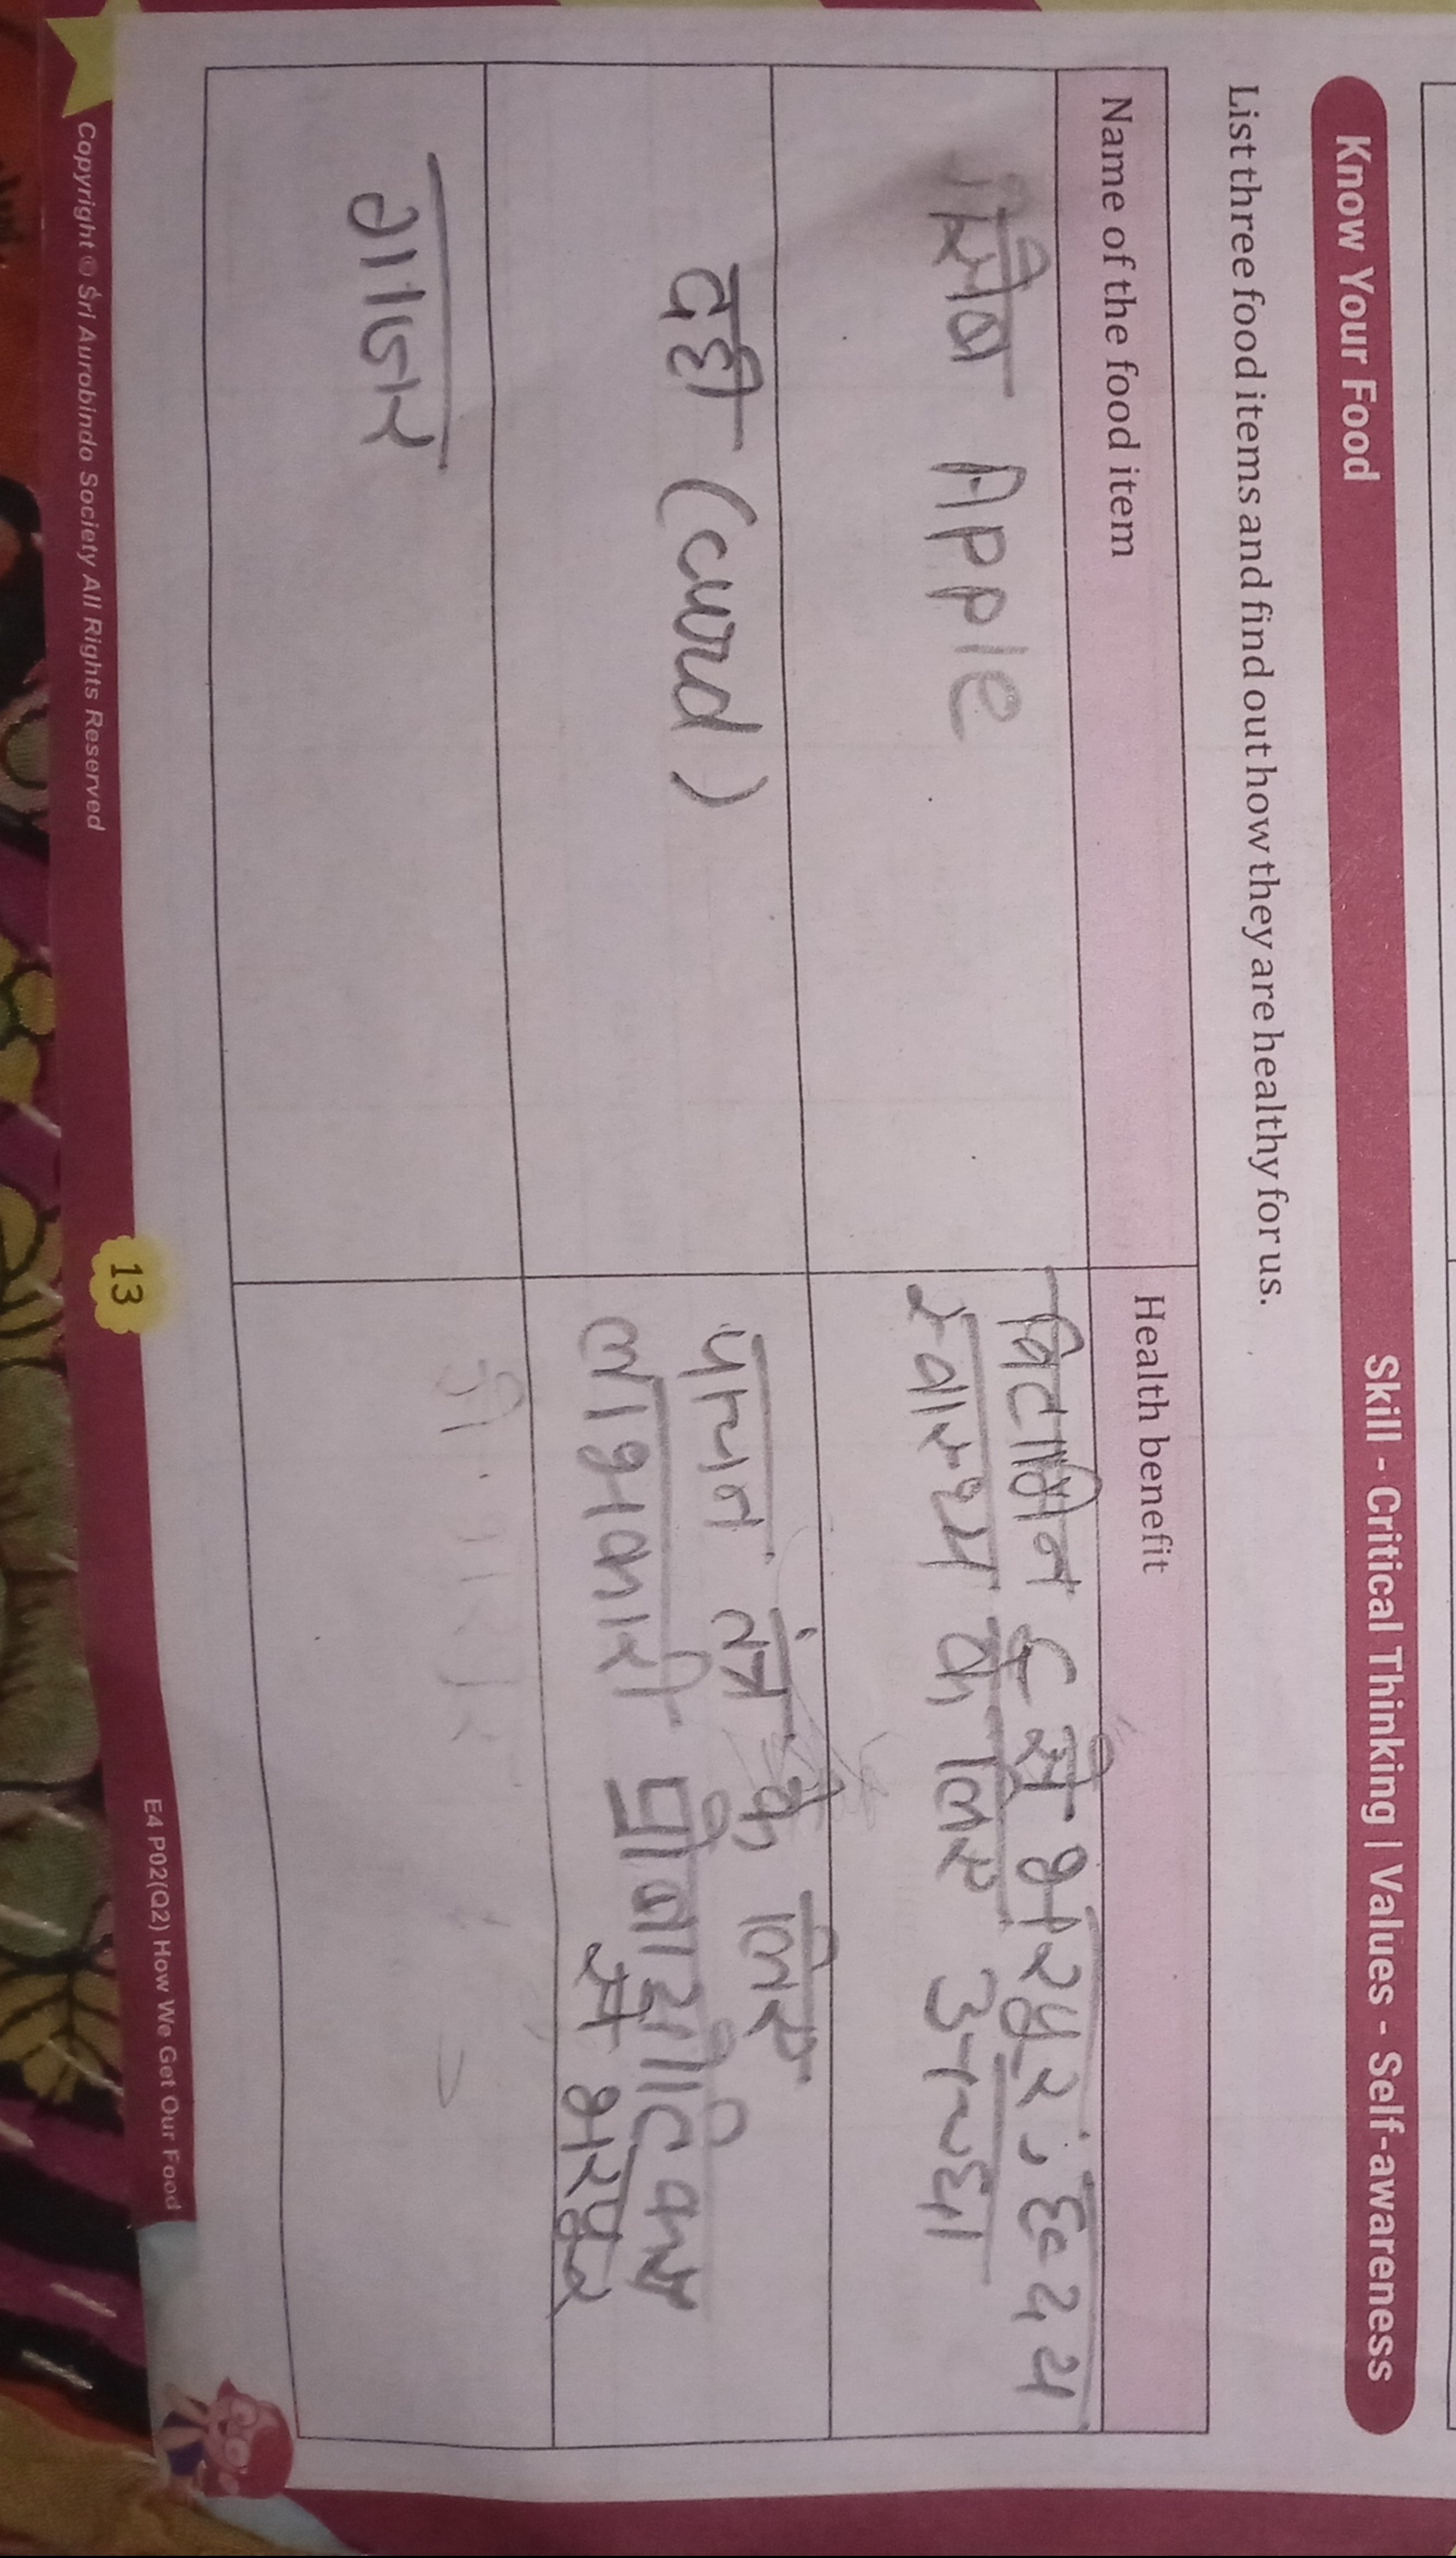 Know Your Food
Skill - Critical Thinking | Values - Self-awareness
List three food items and find out how they are healthy for us.
Name of the food item
Health benefit
सेब Apple
विटामिन ६ से भरपुर, ह्रदय
स्वास्थ्य के लिए अच्छा
दही (curd)
पाचन तंत्र के लिए
लाभकारी प्रोबायोटिक्स
से भरपूर
गाजर
Copyright © Sri Aurobindo Society All Rights Reserved
13
E4 P02(Q2) How We Get Our Food